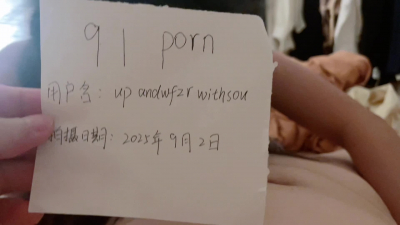 91 porn
用户名: up andwfzr withsou
拍摄日期: 2025年9月2日